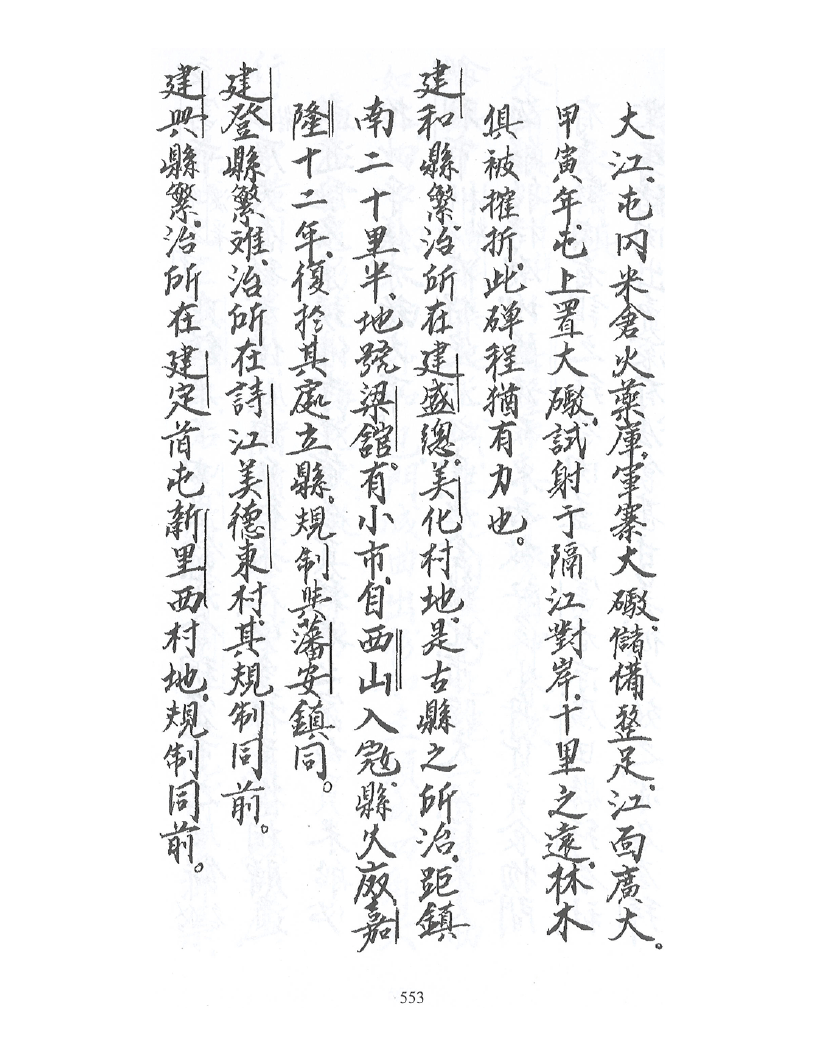 大江、屯內米倉火藥庫、軍寨大礮、儲備整足、江面廣大。
甲寅年、屯上置大礮、試射于隔江對岸、十里之遠、林木
俱被摧折、此磾程猶有力也。
建和縣繁、治所在建盛總、美化村地、是古縣之所治、距鎮
南二十里半、地號梁舘、有小市、自西山入寇、縣久廢、嘉
隆十二年、復於其處立縣。規制與藩安鎮同。
建登縣繁难、治所在詩江美德東村、其規制同前。
建興縣繁、治所在建定首屯新里西村地、規制同前。
553